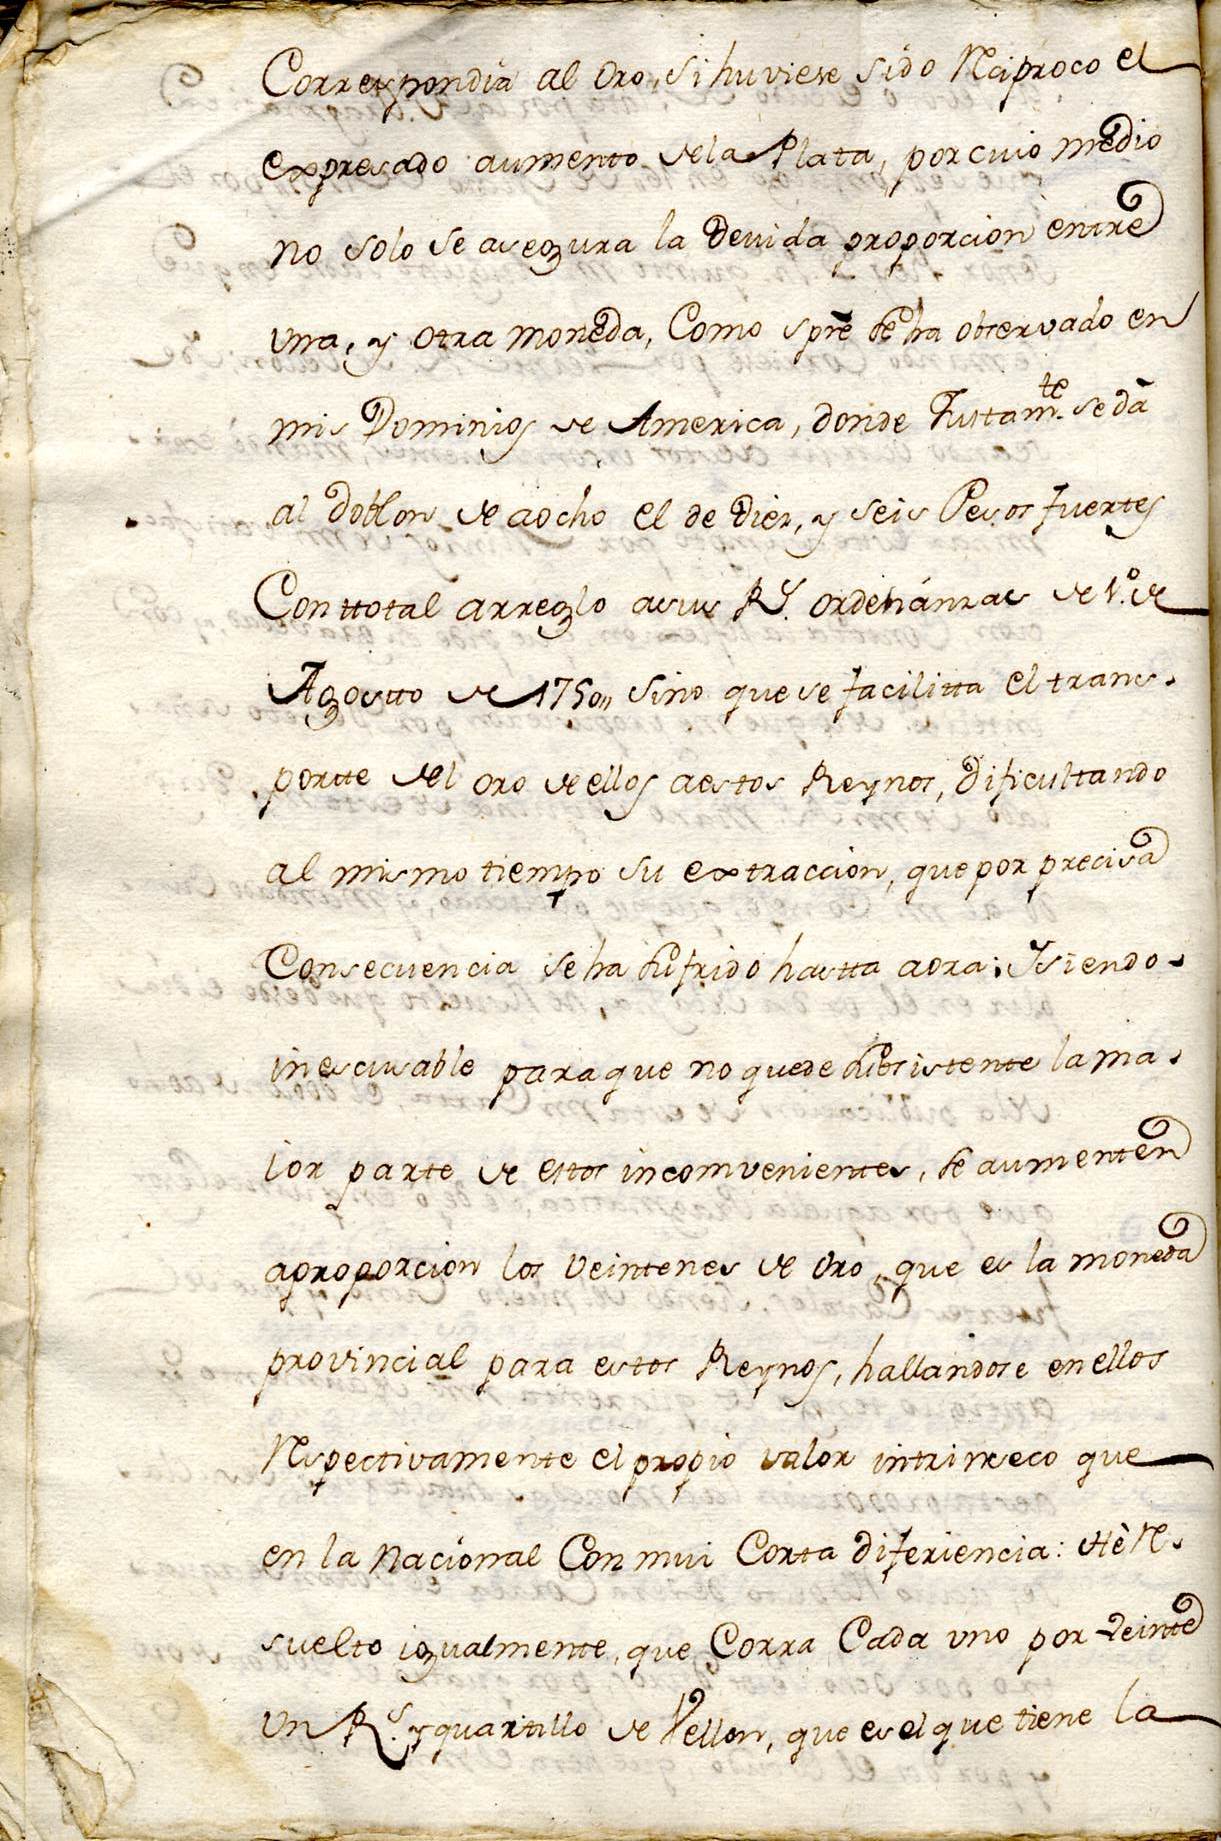 Correspondia al Oro, si huviese sido Reciproco el
expresado aumento dela Plata, por cuio medio
no solo se asegura la devida proporcion entre
una, y otra moneda, Como spre se ha observado en
mis Dominios de America, donde Justamte se dà
al Doblon de aocho el de diez, y seis Pesos fuertes
Con ttotal arreglo asus Rs. ordenánzas de 1.º de
Agostto de 1750,, sino que se facilitta el trans-
portte del Oro de ellos aestos Reynos, dificultando
al mismo tiempo su extraccion, que por precisa
Consecuencia se ha sufrido hastta aora: Y siendo-
inescusable para que no quede subsistente la ma-
ior parte de esttos incomvenientes, se aumenten
aproporcion los Veintenes de Oro, que es la moneda
provincial para estos Reynos, hallandose en ellos
Respectivamente el propio valor intrinseco que
en la Nacional Con mui Corta diferiencia: Hè Re-
suelto igualmente, que Corra Cada uno por veinte
un Rs. y quartillo de Vellon, que es el que tiene la